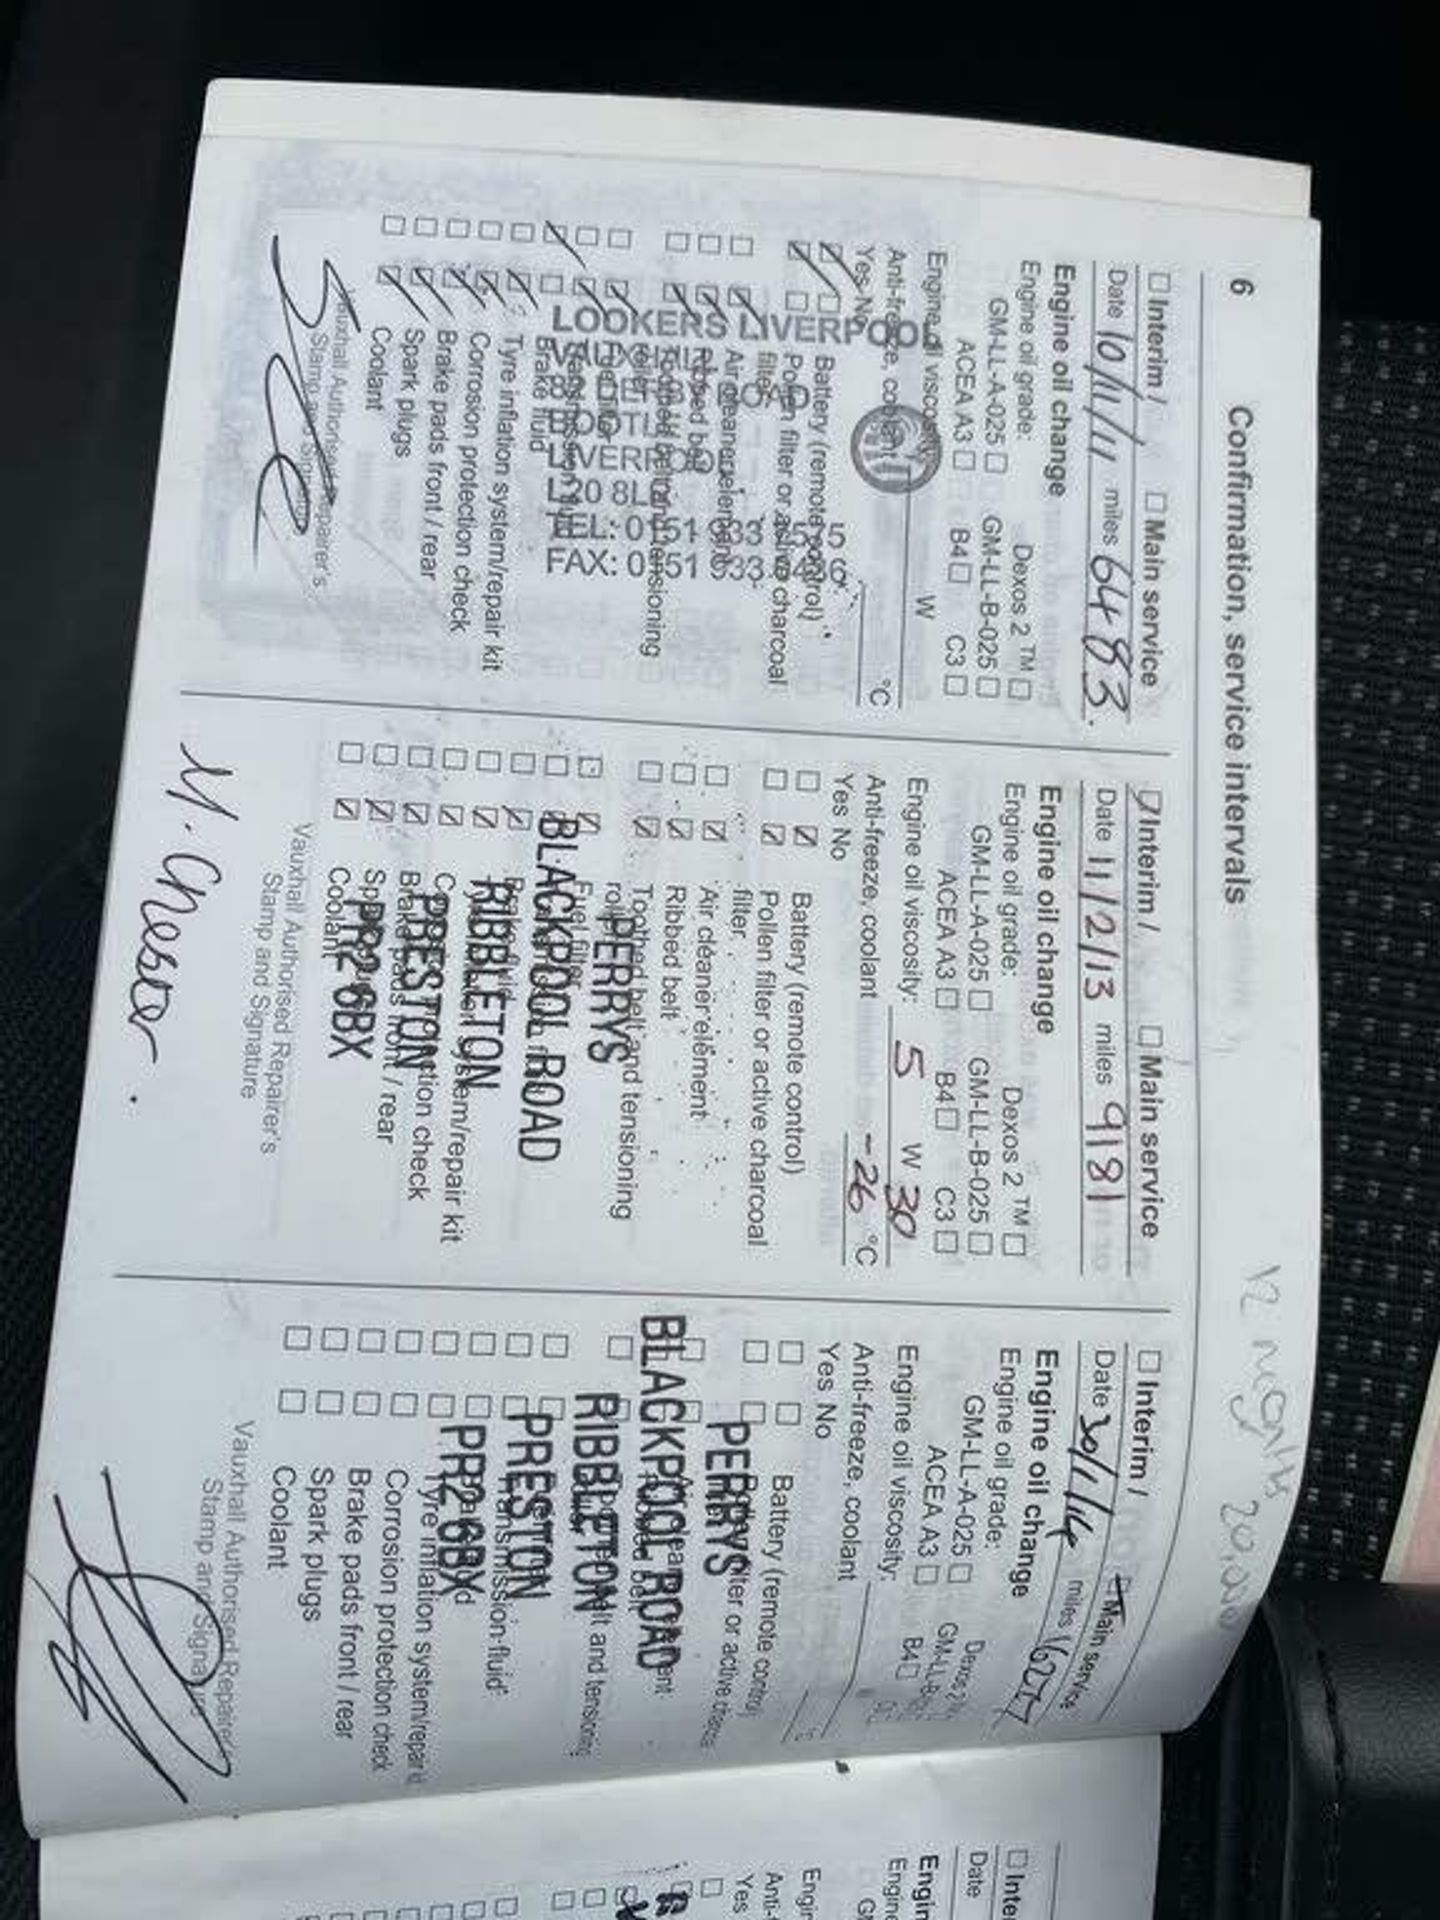 6 Confirmation, service intervals
12 months 20,000
☐ Interim / ☐ Main service
Date 10/11/11 miles 6483.
Engine oil change
Engine oil grade: Dexos 2 ™ ☐
GM-LL-A-025 ☐ GM-LL-B-025 ☐
ACEA A3 ☐ B4 ☐ C3 ☐
Engine oil viscosity: W
Anti-freeze, coolant °C
Yes No
Battery (remote control)
Pollen filter or active charcoal
filter
Air cleaner element
Ribbed belt
Toothed belt and tensioning
Brake fluid
Tyre inflation system/repair kit
Corrosion protection check
Brake pads front / rear
Spark plugs
Coolant
LOOKERS LIVERPOOL
VAUXHALL
BOOTLE
LIVERPOOL
L20 8L
TEL: 0151 933
FAX: 0151 933
Vauxhall Authorised Repairer's
Stamp and Signature
☑ Interim / ☐ Main service
Date 11/2/13 miles 9181
Engine oil change
Engine oil grade: Dexos 2 ™ ☐
GM-LL-A-025 ☐ GM-LL-B-025 ☐
ACEA A3 ☐ B4 ☐ C3 ☐
Engine oil viscosity: 5 W 30
Anti-freeze, coolant -26 °C
Yes No
Battery (remote control)
Pollen filter or active charcoal
filter
Air cleaner element
Ribbed belt
Toothed belt and tensioning
Fuel filter
Brake fluid
system/repair kit
Corrosion protection check
Brake pads front / rear
Coolant
PERRYS
BLACKPOOL ROAD
RIBBLETON
PRESTON
PR2 6BX
Vauxhall Authorised Repairer's
Stamp and Signature
M. Chester.
☐ Interim / Main service
Date 30/1/14 miles
Engine oil change
Engine oil grade: Dexos 2
GM-LL-A-025 ☐ GM-LL-B-
ACEA A3 ☐ B4 ☐
Engine oil viscosity:
Anti-freeze, coolant
Yes No
Battery (remote control)
filter or active charcoal
belt and tensioning
Transmission fluid
Tyre inflation system/repair kit
Corrosion protection check
Brake pads front / rear
Spark plugs
Coolant
PERRYS
BLACKPOOL ROAD
RIBBLETON
PRESTON
PR2 6BX
Vauxhall Authorised Repairer
Stamp and Signa
☐ Inte
Date
Engin
Engine
GM
Engin
Anti-f
Yes